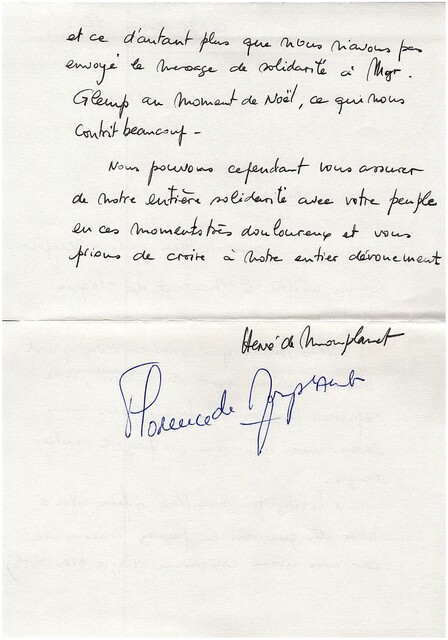 et ce d'autant plus que nous n'avons pas
envoyé le message de solidarité à Mgr.
Glemp au moment de Noël, ce qui nous
contrit beaucoup -
Nous pouvons cependant vous assurer
de notre entière solidarité avec votre peuple
en ces moments très douloureux et vous
prions de croire à notre entier dévouement
Hervé de Monplanet
Florence de